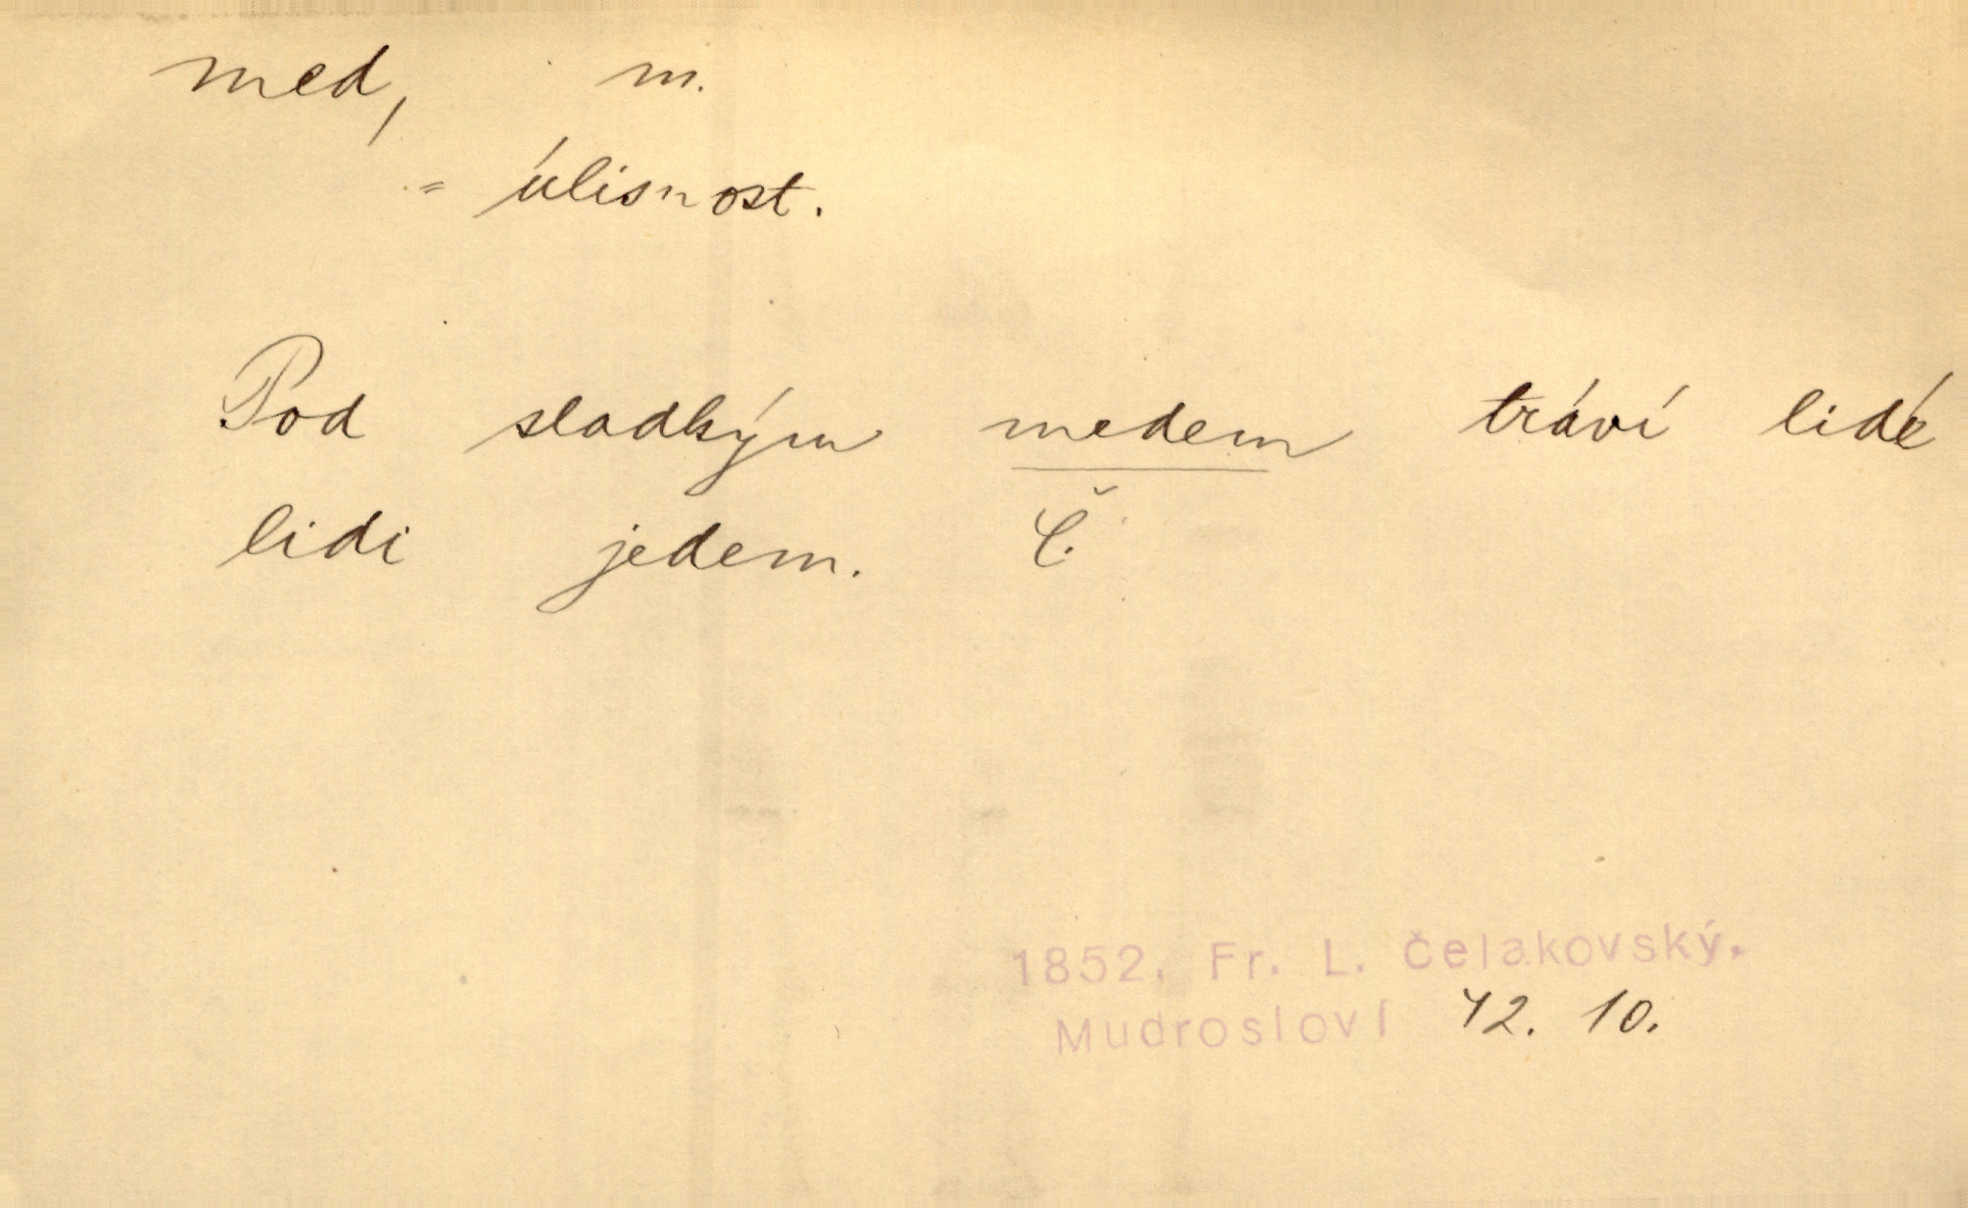 med, m.
= úlisnost.
Pod sladkým medem tráví lidé
lidi jedem. Č.
1852. Fr. L. Čelakovský.
Mudrosloví 42. 10.